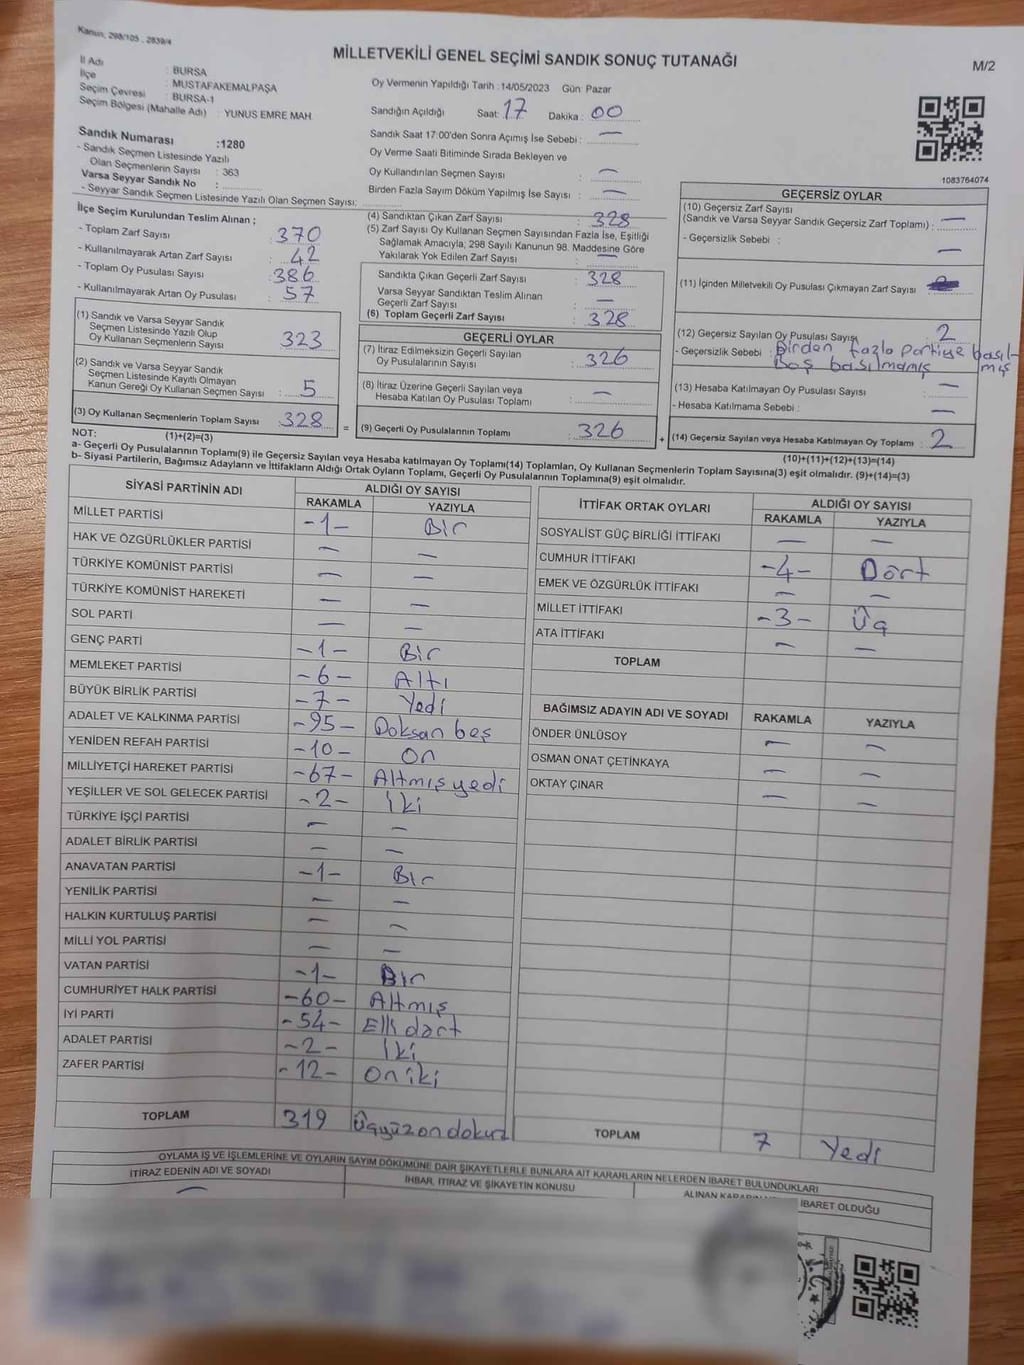 Kanun, 298/105 , 2839/4
MİLLETVEKİLİ GENEL SEÇİMİ SANDIK SONUÇ TUTANAĞI
M/2
İl Adı : BURSA
İlçe : MUSTAFAKEMALPAŞA
Seçim Çevresi : BURSA-1
Seçim Bölgesi (Mahalle Adı) : YUNUS EMRE MAH
Oy Vermenin Yapıldığı Tarih : 14/05/2023 Gün: Pazar
Sandığın Açıldığı Saat: 17 Dakika: 00
Sandık Saat 17:00'den Sonra Açımış İse Sebebi : —
Oy Verme Saati Bitiminde Sırada Bekleyen ve
Oy Kullandırılan Seçmen Sayısı : —
Birden Fazla Sayım Döküm Yapılmış İse Sayısı : —
1083764074
Sandık Numarası :1280
- Sandık Seçmen Listesinde Yazılı
Olan Seçmenlerin Sayısı : 363
Varsa Seyyar Sandık No :
- Seyyar Sandık Seçmen Listesinde Yazılı Olan Seçmen Sayısı:
İlçe Seçim Kurulundan Teslim Alınan ;
- Toplam Zarf Sayısı : 370
- Kullanılmayarak Artan Zarf Sayısı : 42
- Toplam Oy Pusulası Sayısı : 386
- Kullanılmayarak Artan Oy Pusulası : 57
(1) Sandık ve Varsa Seyyar Sandık
Seçmen Listesinde Yazılı Olup
Oy Kullanan Seçmenlerin Sayısı : 323
(2) Sandık ve Varsa Seyyar Sandık
Seçmen Listesinde Kayıtlı Olmayan
Kanun Gereği Oy Kullanan Seçmen Sayısı : 5
(3) Oy Kullanan Seçmenlerin Toplam Sayısı : 328
(4) Sandıktan Çıkan Zarf Sayısı : 328
(5) Zarf Sayısı Oy Kullanan Seçmen Sayısından Fazla İse, Eşitliği
Sağlamak Amacıyla; 298 Sayılı Kanunun 98. Maddesine Göre
Yakılarak Yok Edilen Zarf Sayısı : —
Sandıkta Çıkan Geçerli Zarf Sayısı : 328
Varsa Seyyar Sandıktan Teslim Alınan
Geçerli Zarf Sayısı : —
(6) Toplam Geçerli Zarf Sayısı : 328
GEÇERLİ OYLAR
(7) İtiraz Edilmeksizin Geçerli Sayılan
Oy Pusulalarının Sayısı : 326
(8) İtiraz Üzerine Geçerli Sayılan veya
Hesaba Katılan Oy Pusulası Toplamı : —
= (9) Geçerli Oy Pusulalarının Toplamı : 326
GEÇERSİZ OYLAR
(10) Geçersiz Zarf Sayısı
(Sandık ve Varsa Seyyar Sandık Geçersiz Zarf Toplamı) : —
- Geçersizlik Sebebi : —
(11) İçinden Milletvekili Oy Pusulası Çıkmayan Zarf Sayısı :
(12) Geçersiz Sayılan Oy Pusulası Sayısı : 2
- Geçersizlik Sebebi : Birden fazla partiye basılmış
Boş basılmamış
(13) Hesaba Katılmayan Oy Pusulası Sayısı : —
- Hesaba Katılmama Sebebi : —
+ (14) Geçersiz Sayılan veya Hesaba Katılmayan Oy Toplamı : 2
NOT: (1)+(2)=(3)
(10)+(11)+(12)+(13)=(14)
a- Geçerli Oy Pusulalarının Toplamı(9) ile Geçersiz Sayılan veya Hesaba katılmayan Oy Toplamı(14) Toplamları, Oy Kullanan Seçmenlerin Toplam Sayısına(3) eşit olmalıdır. (9)+(14)=(3)
b- Siyasi Partilerin, Bağımsız Adayların ve İttifakların Aldığı Ortak Oyların Toplamı, Geçerli Oy Pusulalarının Toplamına(9) eşit olmalıdır.
SİYASİ PARTİNİN ADI ALDIĞI OY SAYISI
RAKAMLA YAZIYLA
MİLLET PARTİSİ -1- Bir
HAK VE ÖZGÜRLÜKLER PARTİSİ — —
TÜRKİYE KOMÜNİST PARTİSİ — —
TÜRKİYE KOMÜNİST HAREKETİ — —
SOL PARTİ — —
GENÇ PARTİ -1- Bir
MEMLEKET PARTİSİ -6- Altı
BÜYÜK BİRLİK PARTİSİ -7- Yedi
ADALET VE KALKINMA PARTİSİ -95- Doksan beş
YENİDEN REFAH PARTİSİ -10- On
MİLLİYETÇİ HAREKET PARTİSİ -67- Altmış yedi
YEŞİLLER VE SOL GELECEK PARTİSİ -2- İki
TÜRKİYE İŞÇİ PARTİSİ — —
ADALET BİRLİK PARTİSİ — —
ANAVATAN PARTİSİ -1- Bir
YENİLİK PARTİSİ — —
HALKIN KURTULUŞ PARTİSİ — —
MİLLİ YOL PARTİSİ — —
VATAN PARTİSİ -1- Bir
CUMHURİYET HALK PARTİSİ -60- Altmış
İYİ PARTİ -54- Elli dört
ADALET PARTİSİ -2- İki
ZAFER PARTİSİ -12- On iki
TOPLAM 319 Üçyüzondokuz
İTTİFAK ORTAK OYLARI ALDIĞI OY SAYISI
RAKAMLA YAZIYLA
SOSYALİST GÜÇ BİRLİĞİ İTTİFAKI — —
CUMHUR İTTİFAKI -4- Dört
EMEK VE ÖZGÜRLÜK İTTİFAKI — —
MİLLET İTTİFAKI -3- Üç
ATA İTTİFAKI — —
TOPLAM
BAĞIMSIZ ADAYIN ADI VE SOYADI RAKAMLA YAZIYLA
ÖNDER ÜNLÜSOY — —
OSMAN ONAT ÇETİNKAYA — —
OKTAY ÇINAR — —
TOPLAM 7 Yedi
OYLAMA İŞ VE İŞLEMLERİNE VE OYLARIN SAYIM DÖKÜMÜNE DAİR ŞİKAYETLERLE BUNLARA AİT KARARLARIN NELERDEN İBARET BULUNDUKLARI
İTİRAZ EDENİN ADI VE SOYADI İHBAR, İTİRAZ VE ŞİKAYETİN KONUSU ALINAN İBARET OLDUĞU
—